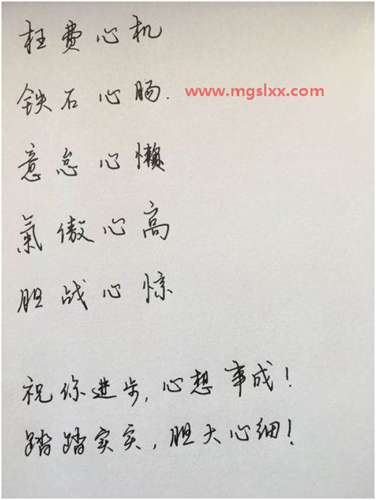 枉费心机
铁石心肠.
www.mgslxx.com
意怠心懒
氣傲心高
胆战心惊
祝你进步,心想事成!
踏踏实实,胆大心细!